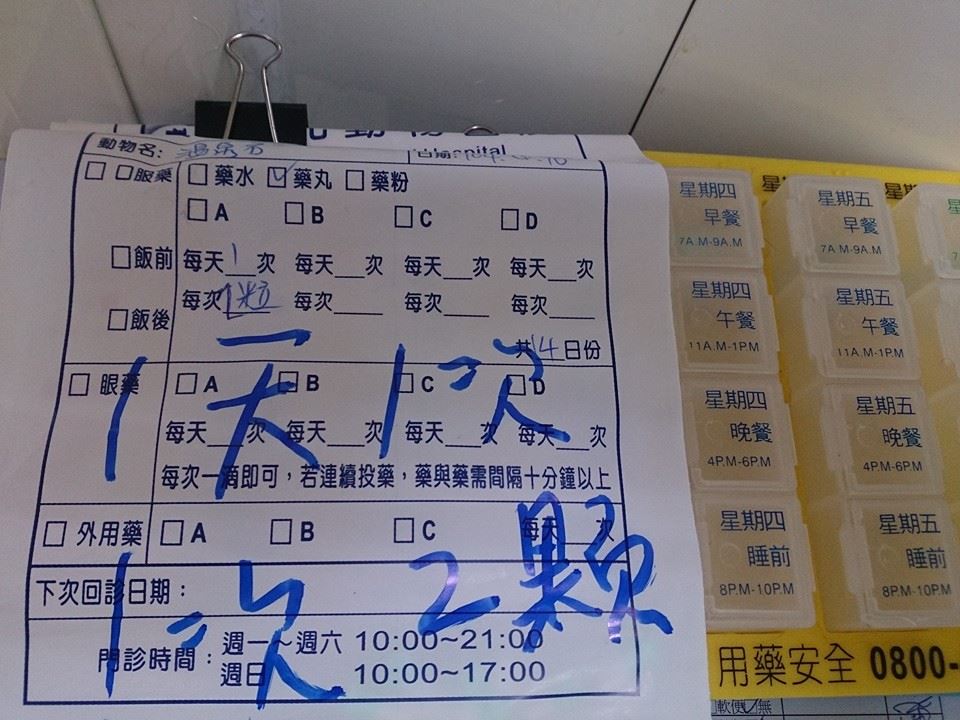 動物名：
ospital
□ □服藥 □藥水 ☑藥丸 □藥粉
□A □B □C □D
□飯前 每天1次 每天___次 每天___次 每天___次
□飯後 每次1粒 每次___ 每次___ 每次___
共14日份
□ 眼藥 □A □B □C □D
每天___次 每天___次 每天___次 每天___次
每次一滴即可，若連續投藥，藥與藥需間隔十分鐘以上
□ 外用藥 □A □B □C 每天___次
下次回診日期：
門診時間：週一～週六 10:00~21:00
週日 10:00~17:00
1天1次
1次2顆
星期四
早餐
7A.M-9A.M
星期五
早餐
7A.M-9A.M
星期四
午餐
11A.M-1P.M
星期五
午餐
11A.M-1P.M
星期四
晚餐
4P.M-6P.M
星期五
晚餐
4P.M-6P.M
星期四
睡前
8P.M-10P.M
星期五
睡前
8P.M-10P.M
用藥安全 0800-
軟便 無